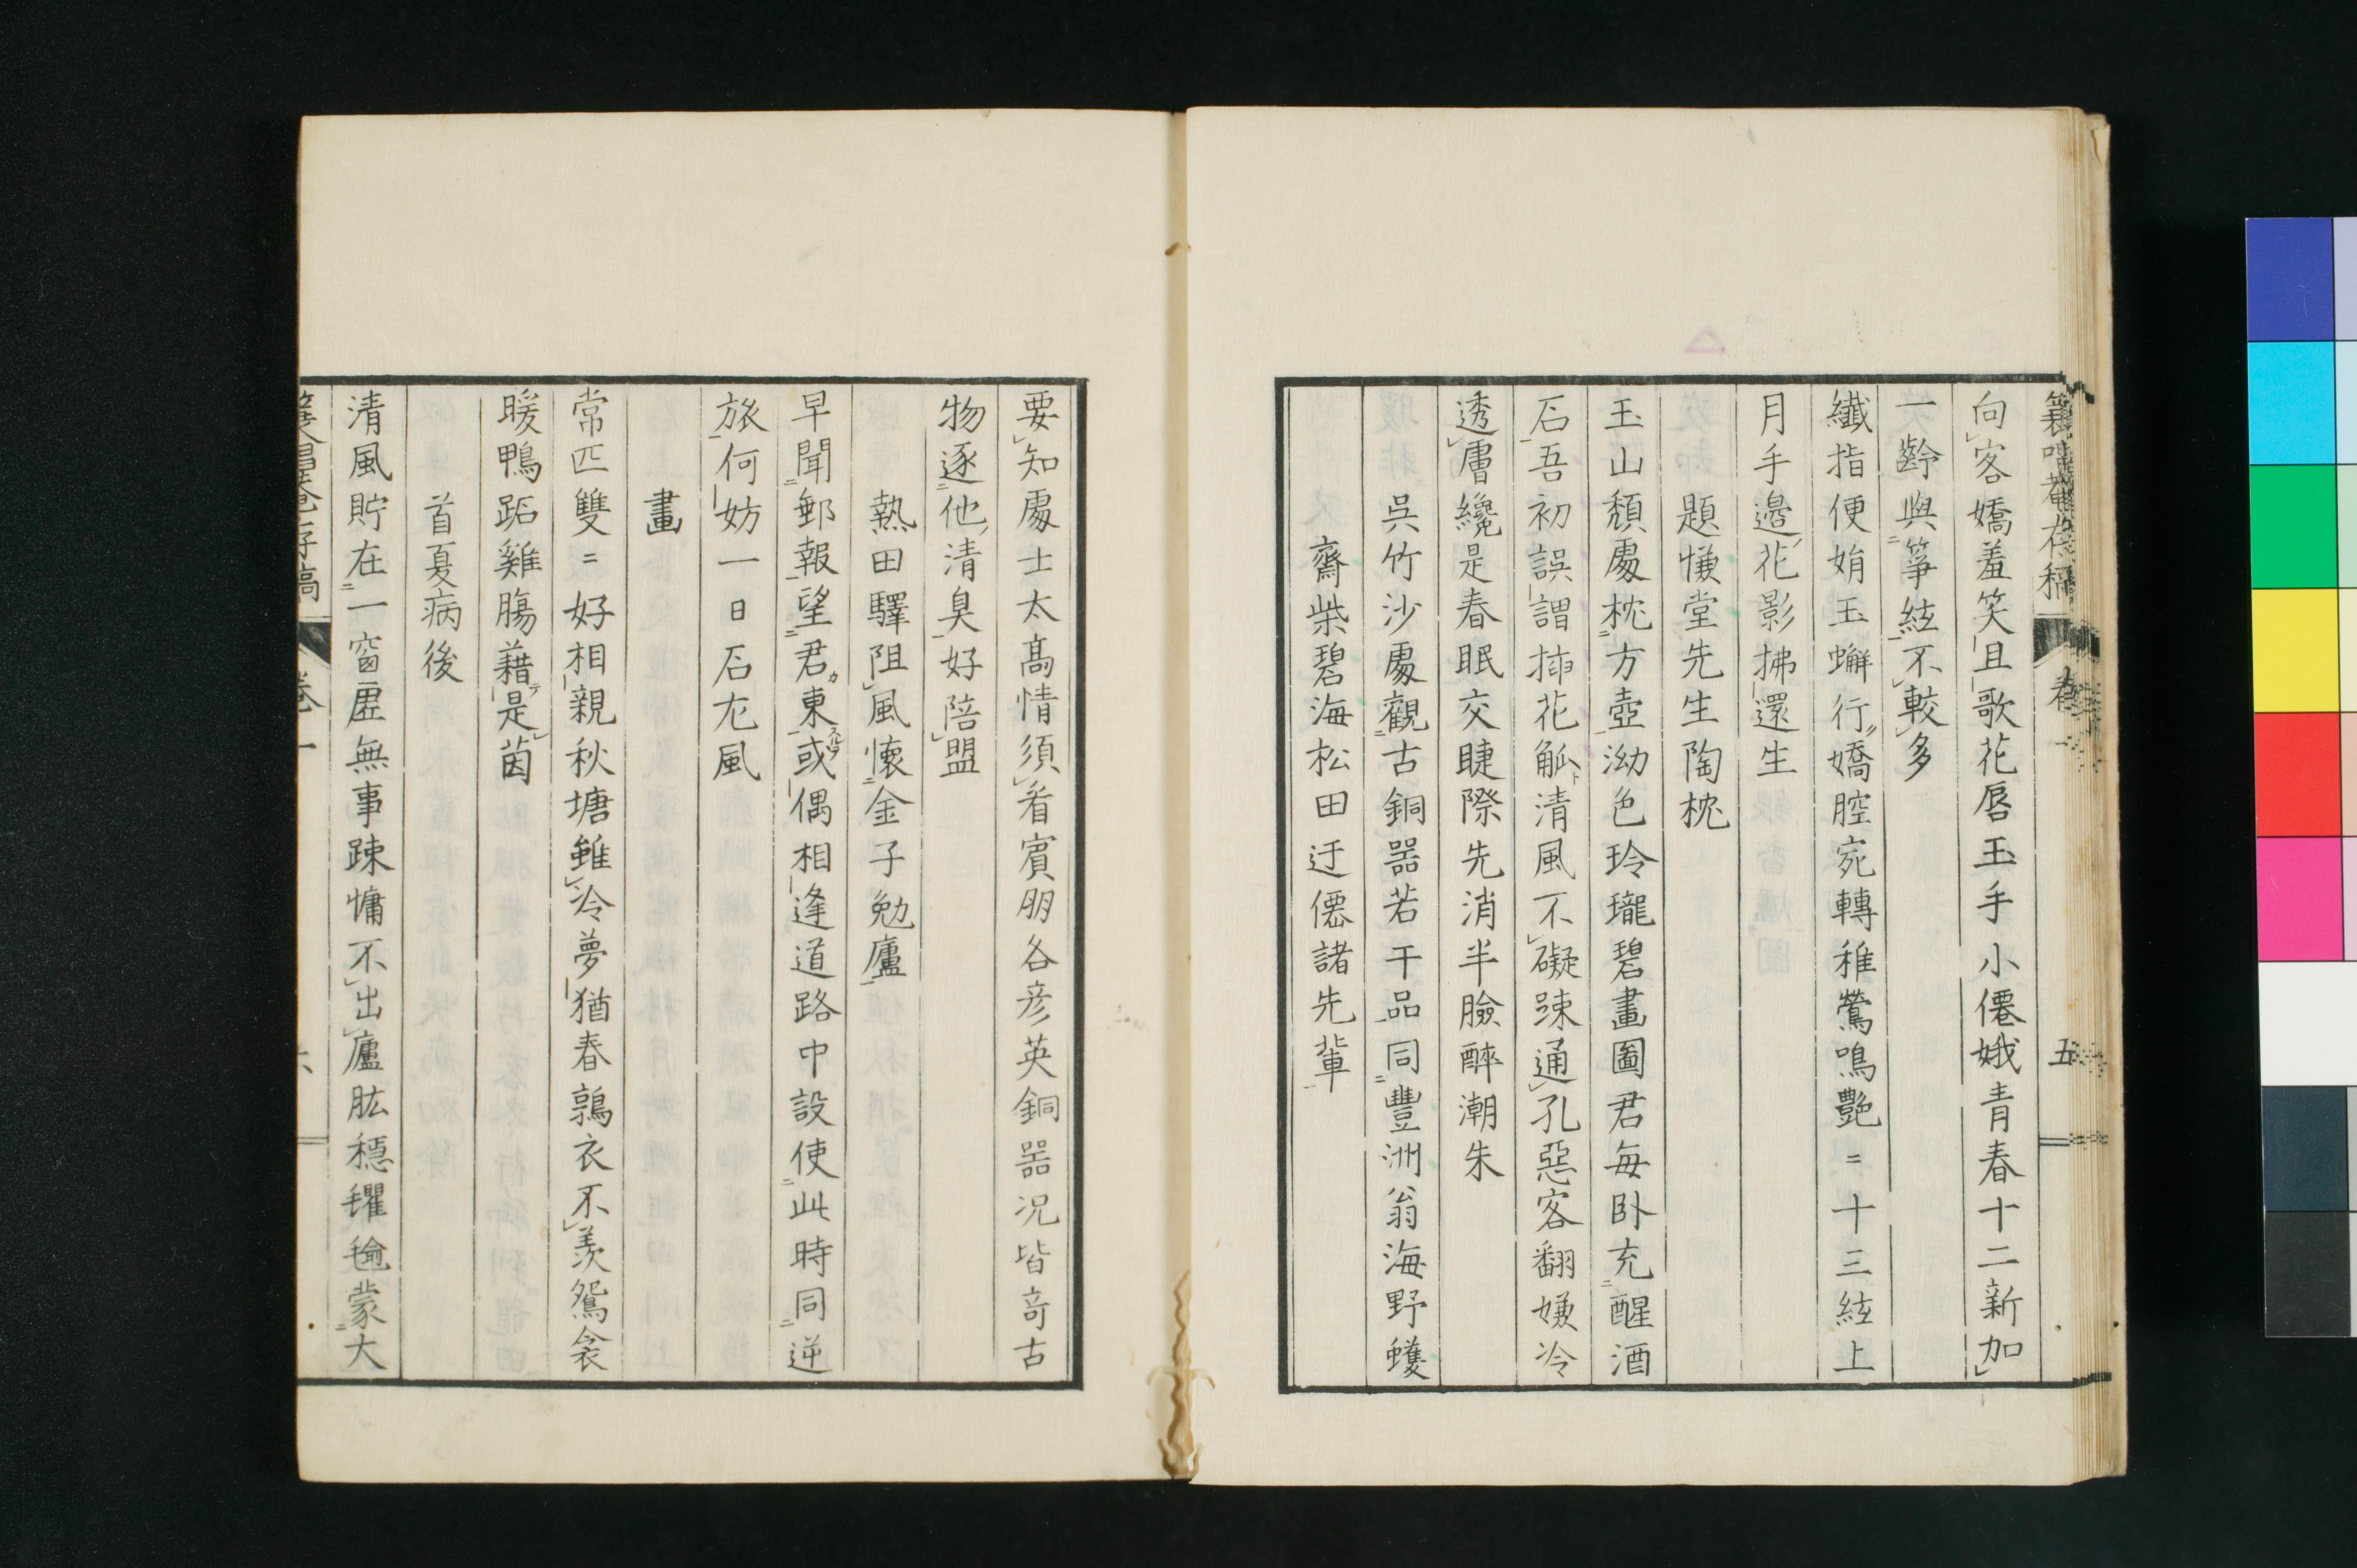 向客嬌羞笑且歌花唇玉手小僊娥青春十二新加
一齡與箏絃不較多
纖指便娟玉蠏行嬌腔宛轉稚鶯鳴艶〻十三絃上
月手邉花影拂還生
題慊堂先生陶枕
玉山頽處枕方壺泑色玲瓏碧畫圖君每卧充醒酒
石吾初誤謂揷花觚清風不礙踈通孔惡客翻嫌冷
透膚纔是春眠交睫際先消半臉醉潮朱
吳竹沙處觀古銅器若干品同豐洲翁海野蠖
齋柴碧海松田迂僊諸先輩
要知處士太髙情須看賓朋各彦英銅器况皆竒古
物逐他清臭好陪盟
熱田驛阻風懷金子勉廬
早聞郵報望君東或偶相逢道路中設使此時同逆
旅何妨一日石尤風
畫
常匹雙〻好相親秋塘雖冷夢猶春鶉衣不羨鴛衾
暖鴨跖雞腸藉是茵
首夏病後
清風貯在一窗虚無事踈慵不出廬肱穩氍毺蒙大